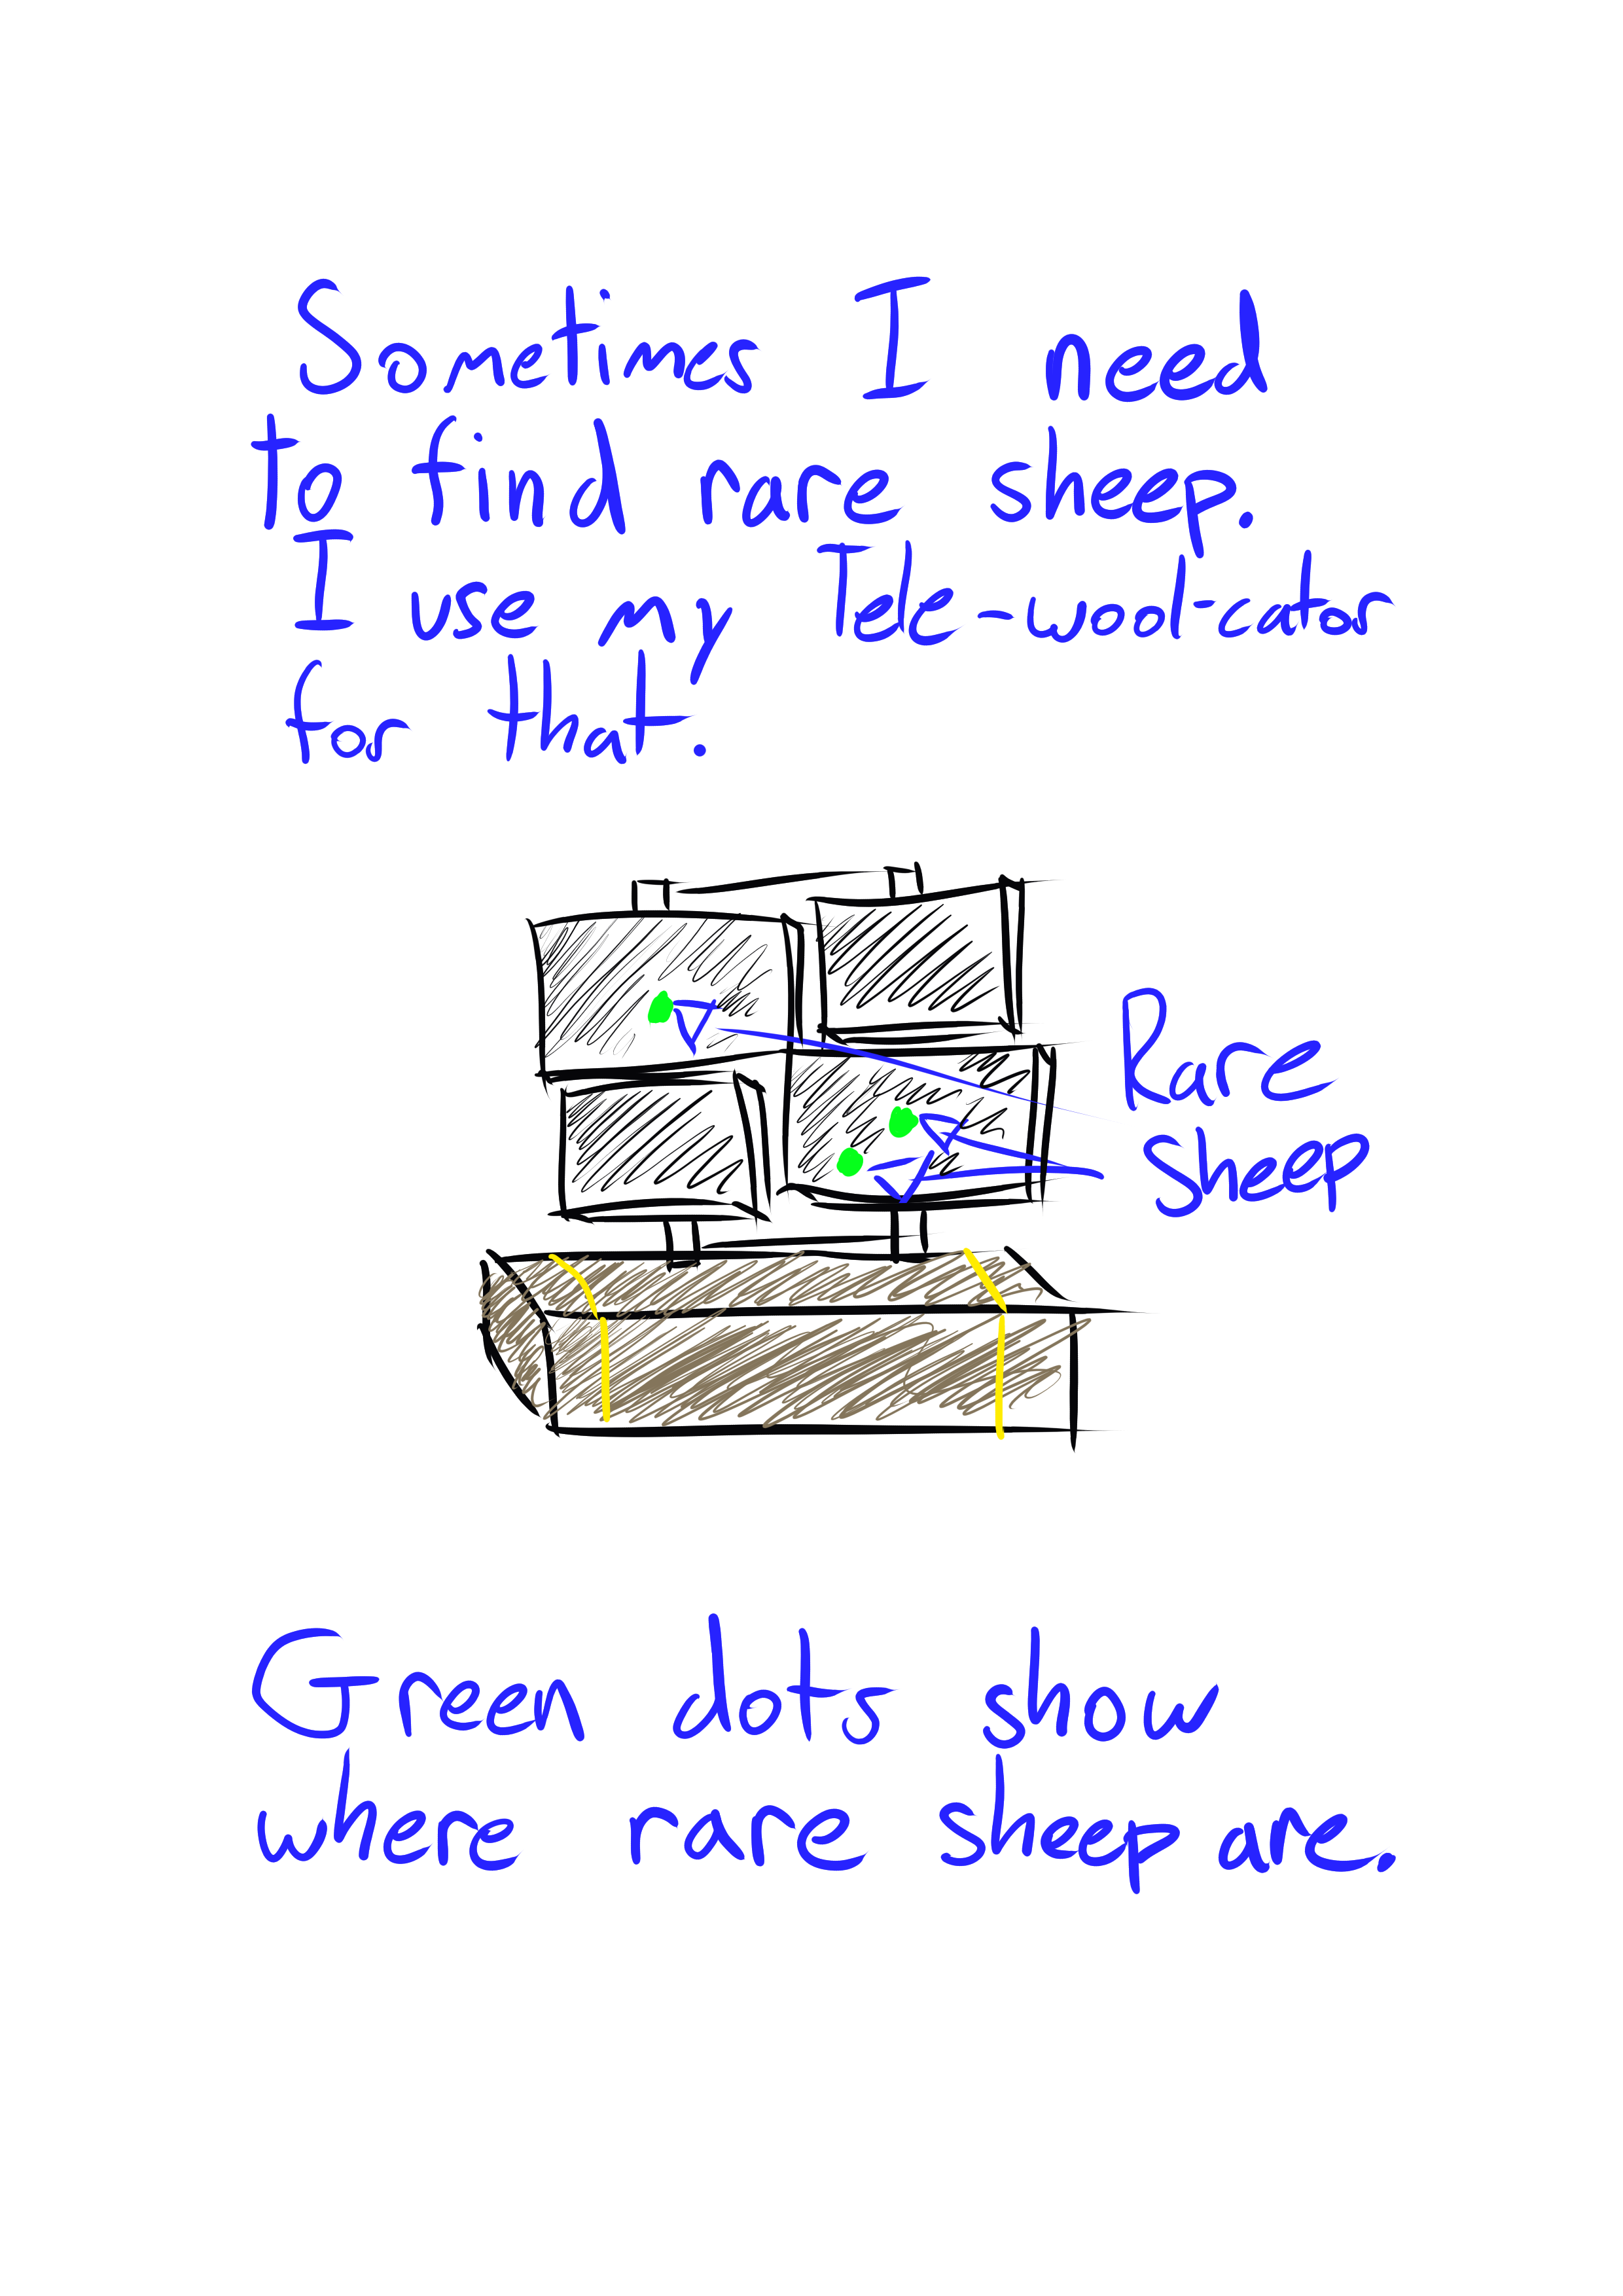 Sometimes I need
to find rare sheep.
I use my Tele-wool-cator
for that.
Rare
sheep
Green dots show
where rare sheep are.